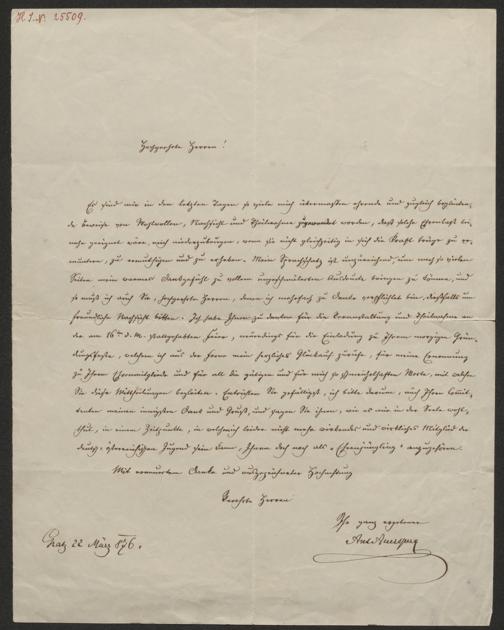 H. I. N. 25509.
Hochgeehrte Herren!
Es sind mir in den letzten Tagen so viele mich überraschende ehrende und zugleich beglücken-
de Beweise von Wohlwollen, Nachsicht und Theilnahme zugewendet worden, daß solche Ehrenlast bei-
nahe geeignet wäre, mich niederzubeugen, wenn sie nicht gleichzeitig in sich die Kraft trüge zu er-
muntern, zu ermuthigen und zu erheben. Mein Sprachschatz ist unzureichend, um nach so vielen
Seiten mein warmes Dankgefühl zu vollem Ausdrucke bringen zu können, und
so muß ich auch Sie, hochgeehrte Herren, denen ich mehrfach zu Danke verpflichtet bin, dießfalls um
freundliche Nachsicht bitten. Ich habe Ihnen zu danken für die Veranstaltung und Theilnahme an
der am 16ten d. M. stattgehabten Feier, für die Einladung zu Ihrem morgigen Grün-
dungsfeste, welchem ich aus der Ferne mein herzliches Glückauf zurufe, für meine Ernennung
zu Ihrem Ehrenmitgliede und für all die gütigen und für mich so schmeichelhaften Worte, mit welchen
Sie diese Mittheilungen begleiten. Entrichten Sie gefälligst, ich bitte darum, auch Ihren Commit-
tenten meinen innigsten Dank und Gruß, und sagen Sie ihnen, wie es mir in der Seele wohl-
thut, in einem Zeitpunkte, in welchem leider nicht mehr wirkendes und wirkliches Mitglied der
deutsch-österreichischen Jugend sein kann, Ihnen doch noch als "Ehrenjüngling" anzugehören.
Mit erneuertem Danke und ausgezeichneter Hochachtung
Verehrte Herren
Ihr ganz ergebener
Ant. Auersperg
Gratz 22 März 876.